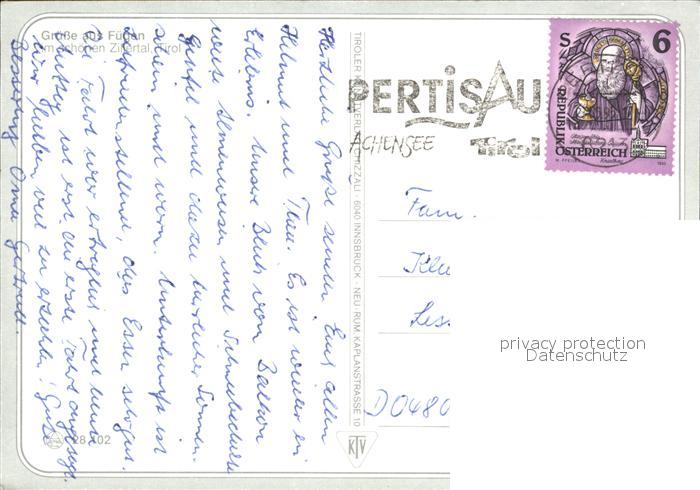 Grüße aus Fügen
im schönen Zillertal, Tirol
Herzliche Grüße sendet Euch allen
Helmut und Thea. Es ist wieder ein
Erlebnis. Unser Blick vom Balkon
weite Almwiesen und Schneebedeckte
Gipfel und dazu herrlicher Sonnen-
schein und warm. Unterkunft ist
zufriedenstellend, das Essen sehr gut.
Die Fahrt war erträglich und heute
Mittag ist erst die erste Fahrt angesagt.
wir haben viel zu erzählen! Gute
Besserung Oma Gertrud.
28 402
TIROLER KUNSTVERLAG CHIZZALI · 6040 INNSBRUCK - NEU-RUM, KAPLANSTRASSE 10
KTV
PERTISAU
ACHENSEE
Tirol
S 6
REPUBLIK
ÖSTERREICH
Fam.
D0480
privacy protection
Datenschutz